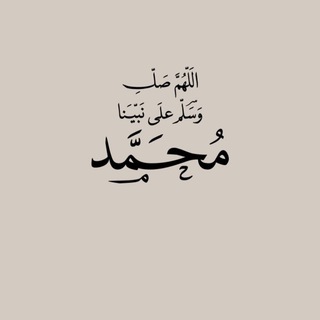 اللَّهُمَّ صَلِّ
وَسَلِّم عَلَى نَبِيِّنَا
مُحَمَّد